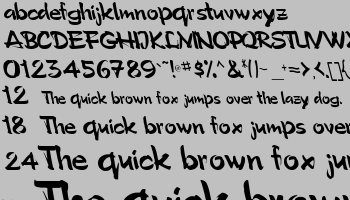 abcdefghijklmnopqrstuvwxyz
ABCDEFGHIJKLMNOPQRSTUVWX
0123456789
12 The quick brown fox jumps over the lazy dog.
18 The quick brown fox jumps over
24 The quick brown fox jum
The quick brow